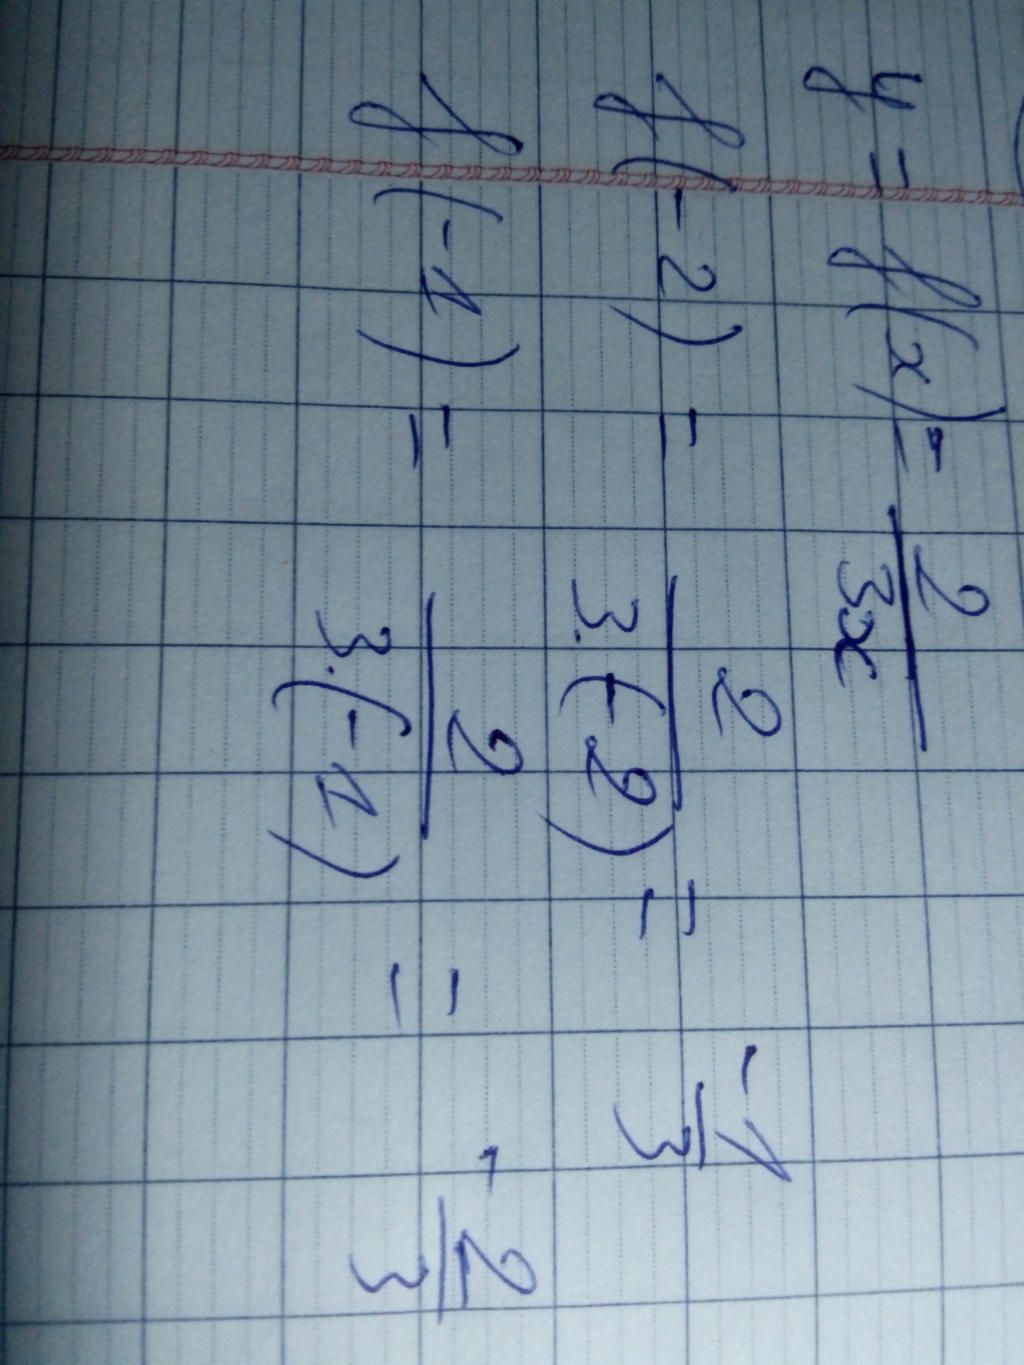 y = f(x) = 2/3x
f(-2) = 2/3.(-2) = -1/3
f(-1) = 2/3.(-1) = -2/3